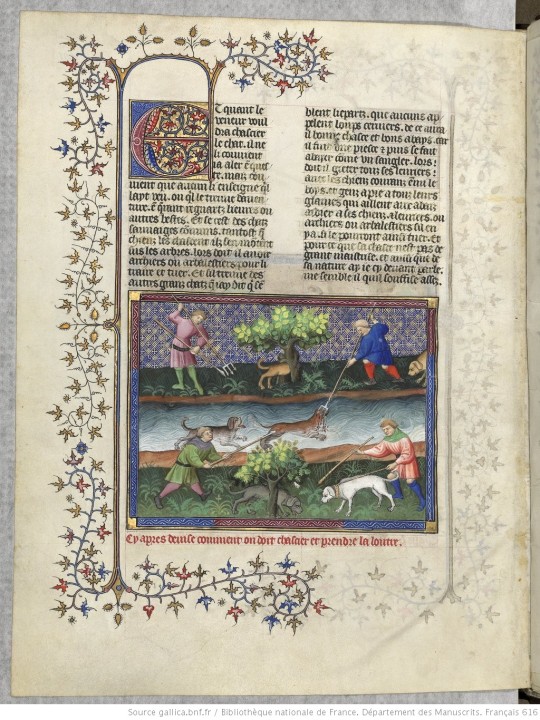 Et quant le
veneur voul
dra chascier
le chat, il ne
li convient
ia aler equis
ter. mais con
uient que aucun li enseigne qil
lait veu. ou qil le truuve dauen
ture. Et quant il quiert lieures ou
autres bestes. Et se cest des chaz
sauuaiges comuns. tantost q̃
chiens les chascent ilz sen montent
sus les arbres. lors doit il auoir
archiers ou arbalestiers pour li
traire et tuer. Et si trueue des
autres grans chaz q̃ iay dit q̃ se
blent liepartz. que aucuns ap
pelent loups ceruiers. de ce aura
il bonne chasce et bons abays. car
il fuit une piesce. et puis se fait
abayer come un sangler. lors
doit il gieter touz ses leuriers
auec les chiens courans enmi le
boys. et gens a pie a touz leurs
glauies qui ailleut aux abais
aidier a ses chiens. et leuriers. ou
archiers ou arbalestiers sil en
ya. si le pourront ainsi tuer. Et
pour ce que sa chasce nest pas de
grant maistrise. et ainsi que de
sa nature ay ie cy deuant parle.
me semble il quil souffise assez.
Cy apres deuise comment on doit chascier et prendre la loutre.
Source gallica.bnf.fr / Bibliothèque nationale de France. Département des Manuscrits. Français 616